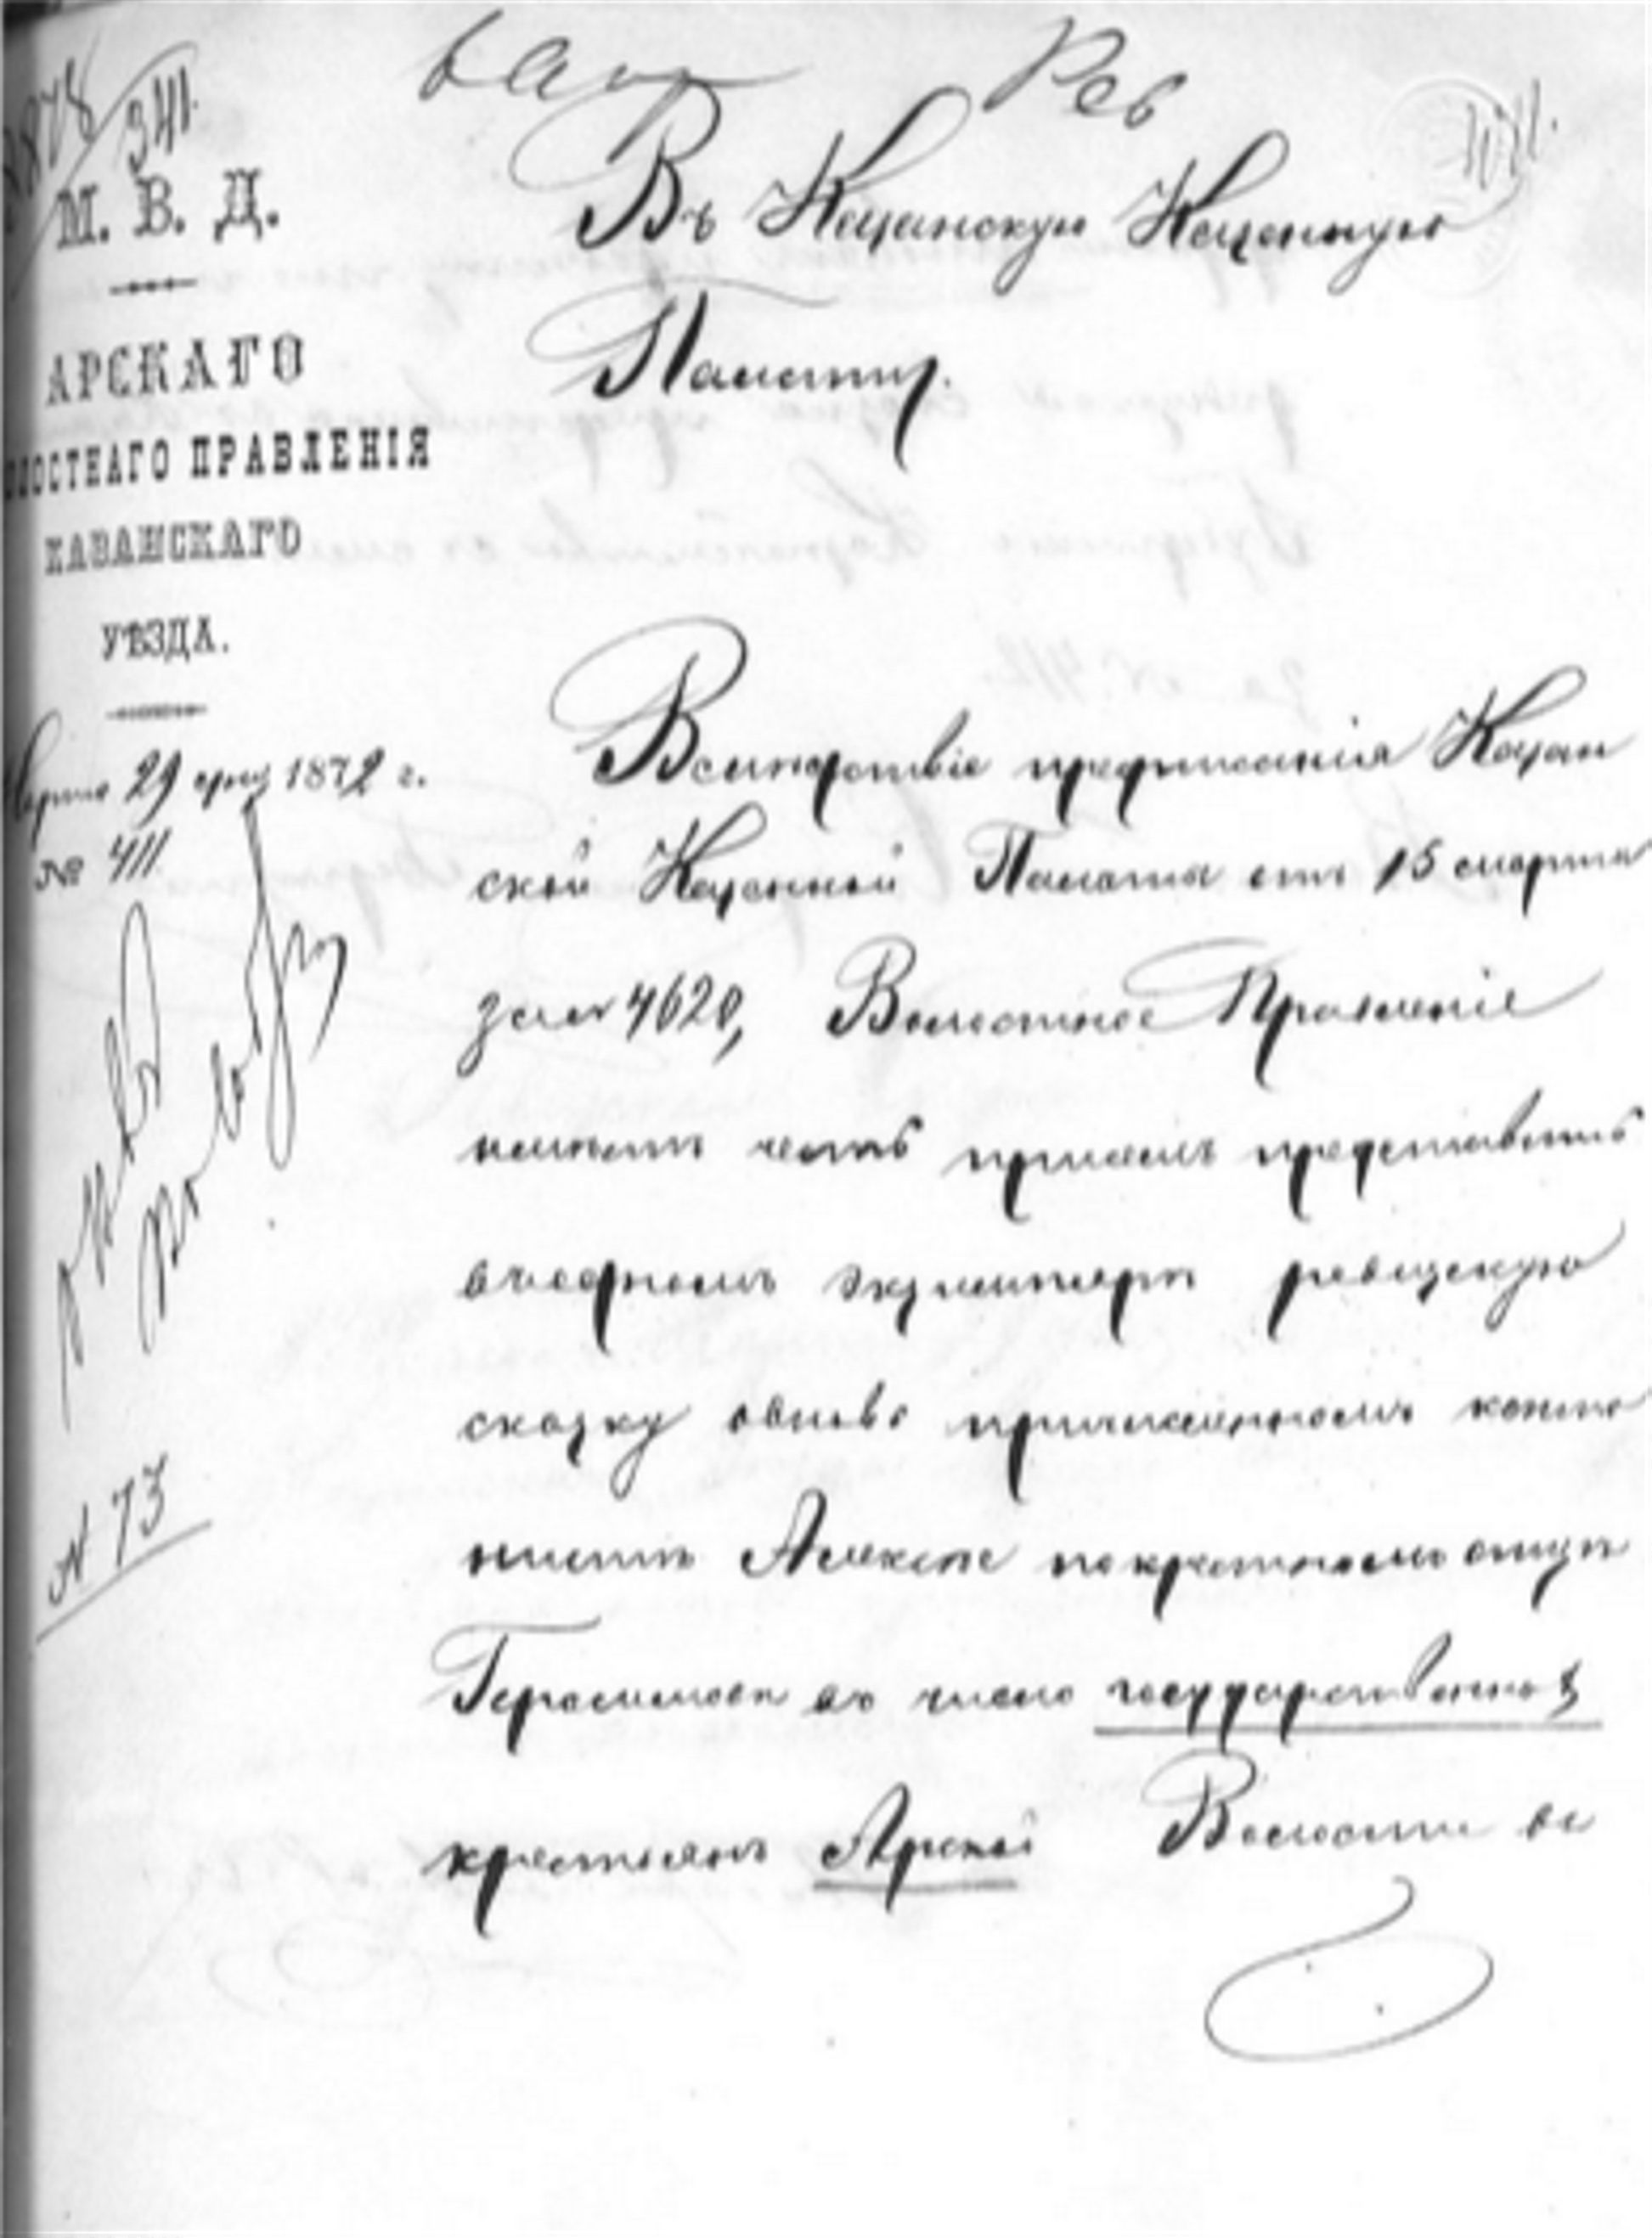 341.
М. В. Д.
АРСКАГО
ВОЛОСТНАГО ПРАВЛЕНІЯ
КАЗАНСКАГО
УѢЗДА.
Марта 29 дня 1872 г.
№ 411
№ 73
Въ Казанскую Казенную
Палату.
Вслѣдствіе предписанія Казан
ской Казенной Палаты отъ 15 марта
за № 4620, Волостное Правленіе
имѣетъ честь при семъ представить
въ одномъ экземплярѣ ревизскую
сказку о вновь причисленномъ канто
нистѣ Алексѣе по крестному отцу
Герасимовѣ въ число государственныхъ
крестьянъ Арской Волости во